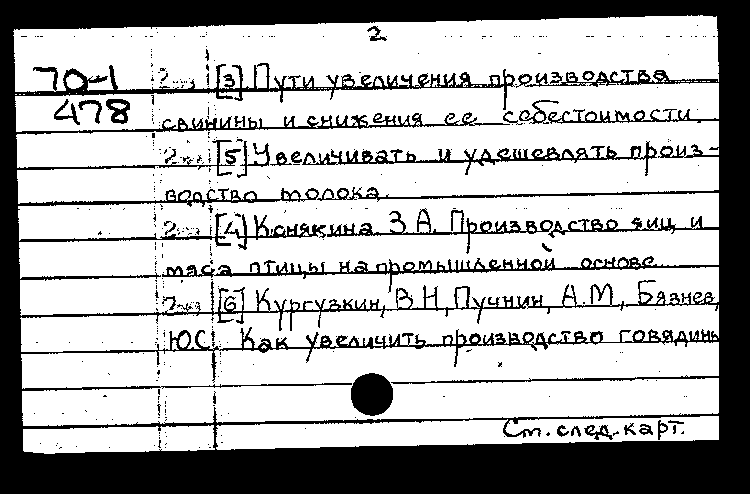 2
70-1 [3] Пути увеличения производства
478 свинины и снижения ее себестоимости.
[5] Увеличивать и удешевлять произ-
водство молока.
[4] Конякина З.А. Производство яиц и
мяса птицы на промышленной основе.
[6] Кургузкин, В.Н., Пучнин, А.М., Бязнев,
Ю.С. Как увеличить производство говядины
См. след. карт.